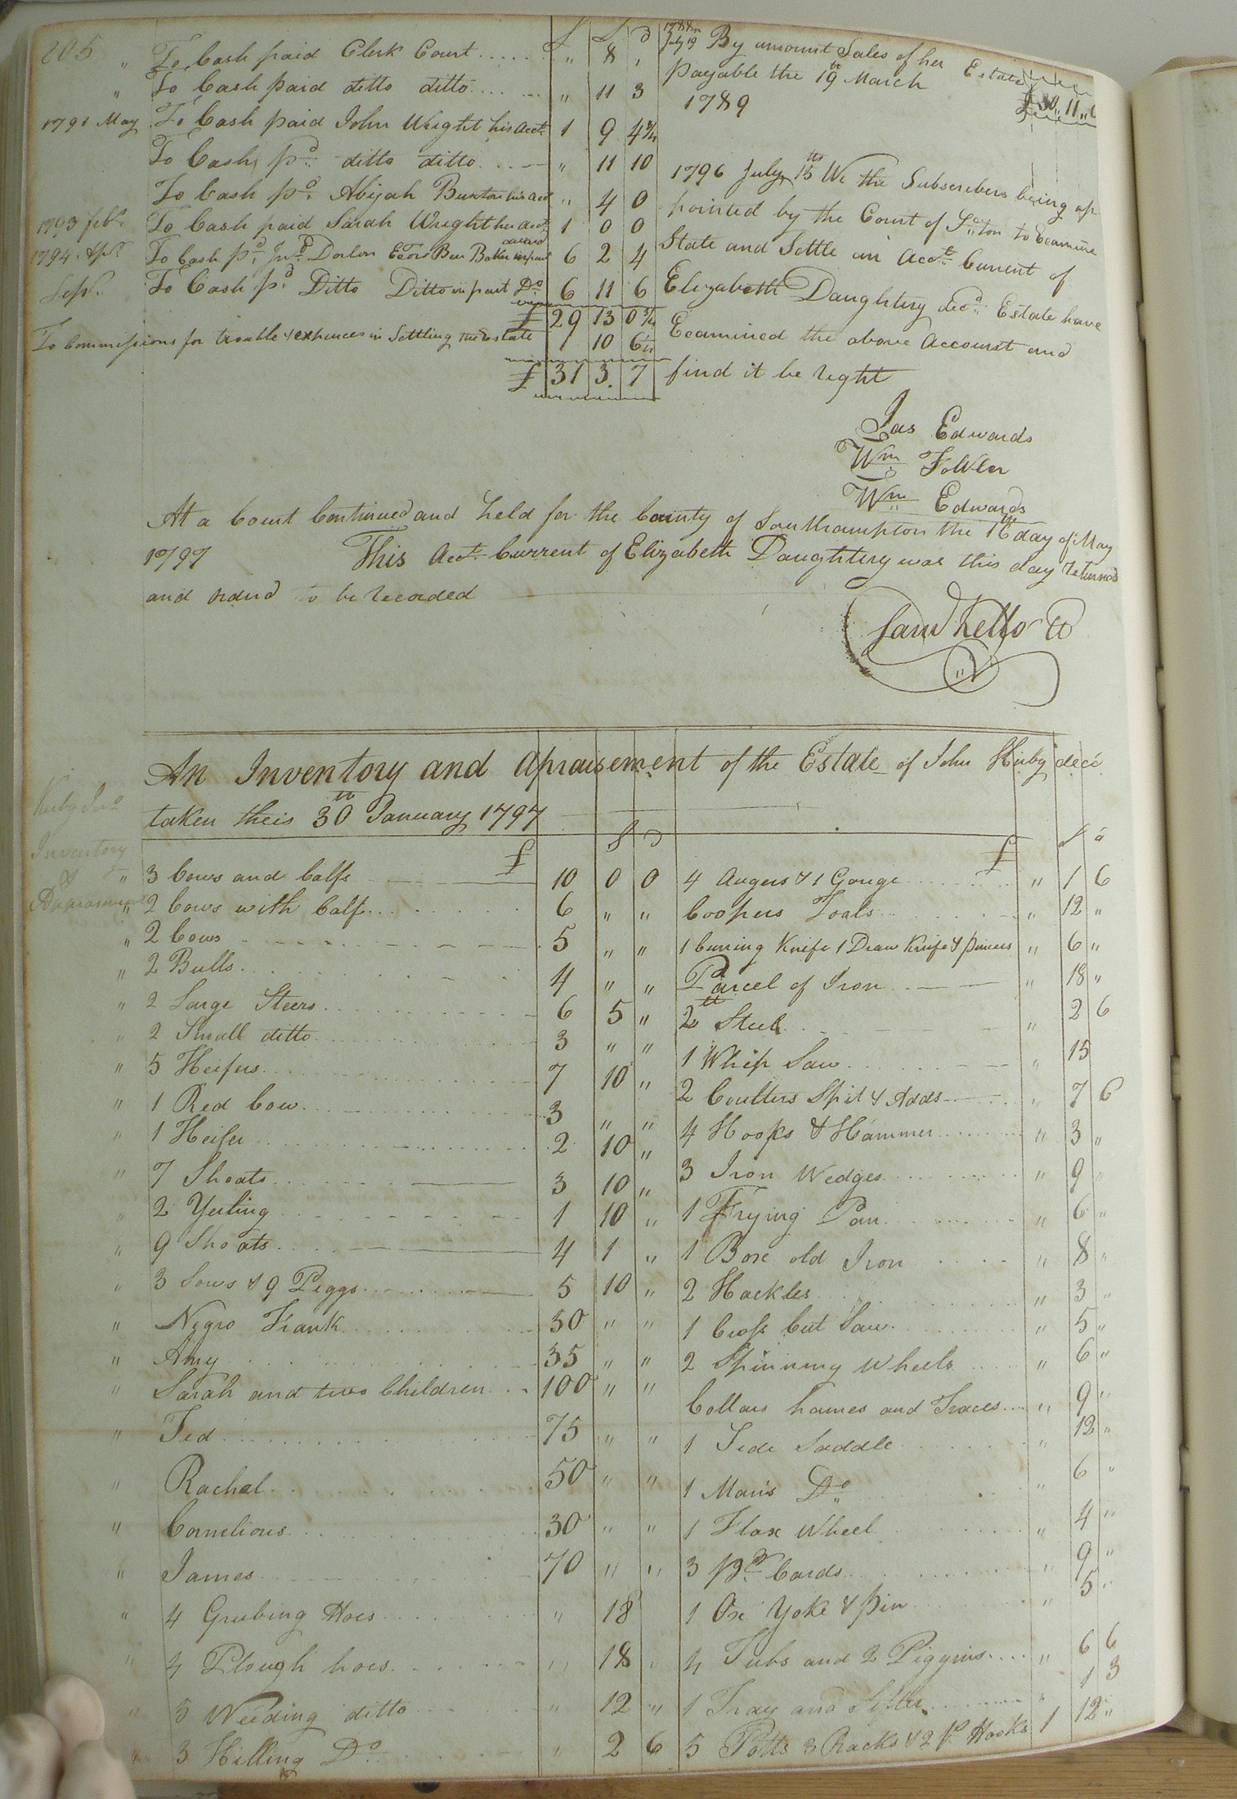 205
" To Cash paid Clerk Court ...... " 8 "
" To Cash paid ditto ditto ...... " 11 3
1791 May To Cash paid John Wright his Acct. 1 9 4¾
To Cash pd. ditto ditto .... " 11 10
To Cash pd. Abijah Buxton his act " 4 0
1793 feby. To Cash paid Sarah Wright her acct. 1 0 0
1794 Apl. To Cash pd. Jno. Denton Exor Ben Baker in part 6 2 4
Sepr. To Cash pd. Ditto Ditto in part Do 6 11 6
£ 29 13 0¾
To Commissions for trouble & expences in Settling the Estate 1 10 6¼
£ 31 3. 7
1788
July 19 By amount Sales of her Estate
payable the 19th March
1789 £30. 11.. 6
1796 July 15th We the Subscribers being ap
pointed by the Court of So.ton to Examine
State and Settle an Acct. Current of
Elizabeth Daughtery decd. Estate have
Examined the above Account and
find it be right
Jas Edwards
Wm Fowler
Wm Edwards
At a Court Continued and held for the County of Southampton the 16th day of May
1797 This Acct. Current of Elizabeth Daughtery was this day returned
and ordered to be recorded
Saml Kello CC
An Inventory and Apraisement of the Estate of John Kirby decd.
taken theis 30th January 1797
Kirby Jno.
Inventory
&
Appraisement
£ S D
" 3 Cows and Calfs 10 0 0
" 2 Cows with Calf 6 " "
" 2 Cows 5 " "
" 2 Bulls 4 " "
" 2 Large Steers 6 5 "
" 2 Small ditto 3 " "
" 5 Heifers 7 10 "
" 1 Red Cow 3 " "
" 1 Heifer 2 10 "
" 7 Shoats 3 10 "
" 2 Yerling 1 10 "
" 9 Shoats 4 1 "
" 3 Sows & 9 Piggs 5 10 "
" Negro Frank 30 " "
" Amy 35 " "
" Sarah and two Children 100 " "
" Ted 75 " "
" Rachel 50 " "
" Cornelious 30 " "
" James 70 " "
" 4 Grubing Hoes " 18
" 4 Plough hoes " 18 "
" 3 Weeding ditto " 12 "
" 3 Hilling Do " 2 6
£ S d
4 Augers & 1 Gouge " 1 6
Coopers Tools " 12 "
1 Curring Knife 1 Draw Knife & pincers " 6 "
Parcel of Iron " 18 "
2 lb Steel " 2 6
1 Whip Saw " 15
2 Coulters Spit & Adds " 7 6
4 Hooks & Hammer " 3 "
3 Iron Wedges " 9 "
1 Frying Pan " 6 "
1 Box old Iron 8 "
2 Hackles " 3 "
1 Cross Cut Saw " 5 "
2 Spinning Wheels " 6 "
Collars hames and Traces " 9 "
1 Side Saddle " 12 "
1 Mans Do " 6 "
1 Flax Wheel " 4 "
3 pr. Cards " 9 "
1 Ox Yoke & pin " 5 "
4 Tubs and 2 Piggins " 6 6
1 Tray and " 1 3
5 Potts 3 Racks & 2 pr. Hooks 1 12 "